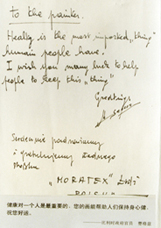 to the painter.
Healty is the most imported "thing"
human people have.
I wish you many luck to help
people to keep this "thing"
Greetings
Serdecznie pozdrawiamy
i gratulujemy
"MORATEX" Łódź
POLSKA
健康对一个人是最重要的，您的画能帮助人们保持身心健康，
祝您好运。